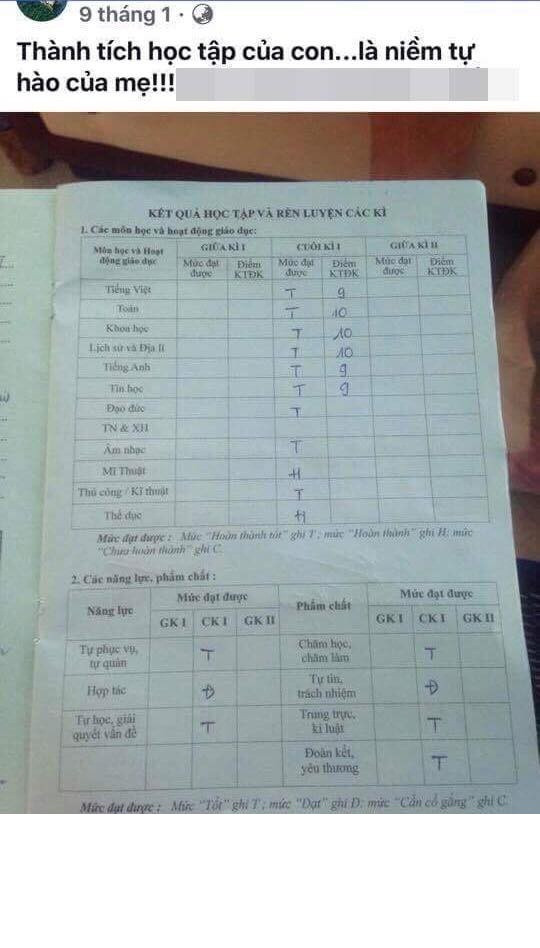 9 tháng 1 ·
Thành tích học tập của con...là niềm tự
hào của mẹ!!!
KẾT QUẢ HỌC TẬP VÀ RÈN LUYỆN CÁC KÌ
1. Các môn học và hoạt động giáo dục:
Môn học và Hoạt động giáo dục GIỮA KÌ I CUỐI KÌ I GIỮA KÌ II
Mức đạt được Điểm KTĐK Mức đạt được Điểm KTĐK Mức đạt được Điểm KTĐK
Tiếng Việt T 9
Toán T 10
Khoa học T 10
Lịch sử và Địa lí T 10
Tiếng Anh T 9
Tin học T 9
Đạo đức T
TN & XH
Âm nhạc T
Mĩ Thuật H
Thủ công / Kĩ thuật T
Thể dục H
Mức đạt được : Mức "Hoàn thành tốt" ghi T; mức "Hoàn thành" ghi H; mức
"Chưa hoàn thành" ghi C.
2. Các năng lực, phẩm chất :
Năng lực Mức đạt được Phẩm chất Mức đạt được
GK I CK I GK II GK I CK I GK II
Tự phục vụ, tự quản T Chăm học, chăm làm T
Hợp tác Đ Tự tin, trách nhiệm Đ
Tự học, giải quyết vấn đề T Trung trực, kỉ luật T
Đoàn kết, yêu thương T
Mức đạt được : Mức "Tốt" ghi T; mức "Đạt" ghi Đ; mức "Cần cố gắng" ghi C.